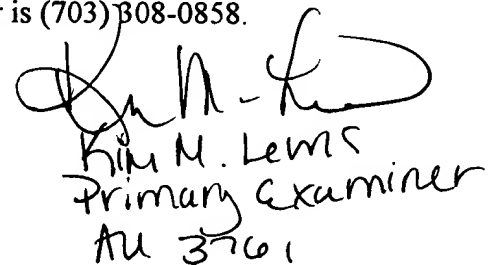 is (703) 308-0858.
Kim M. Lewis
Primary Examiner
AU 3761